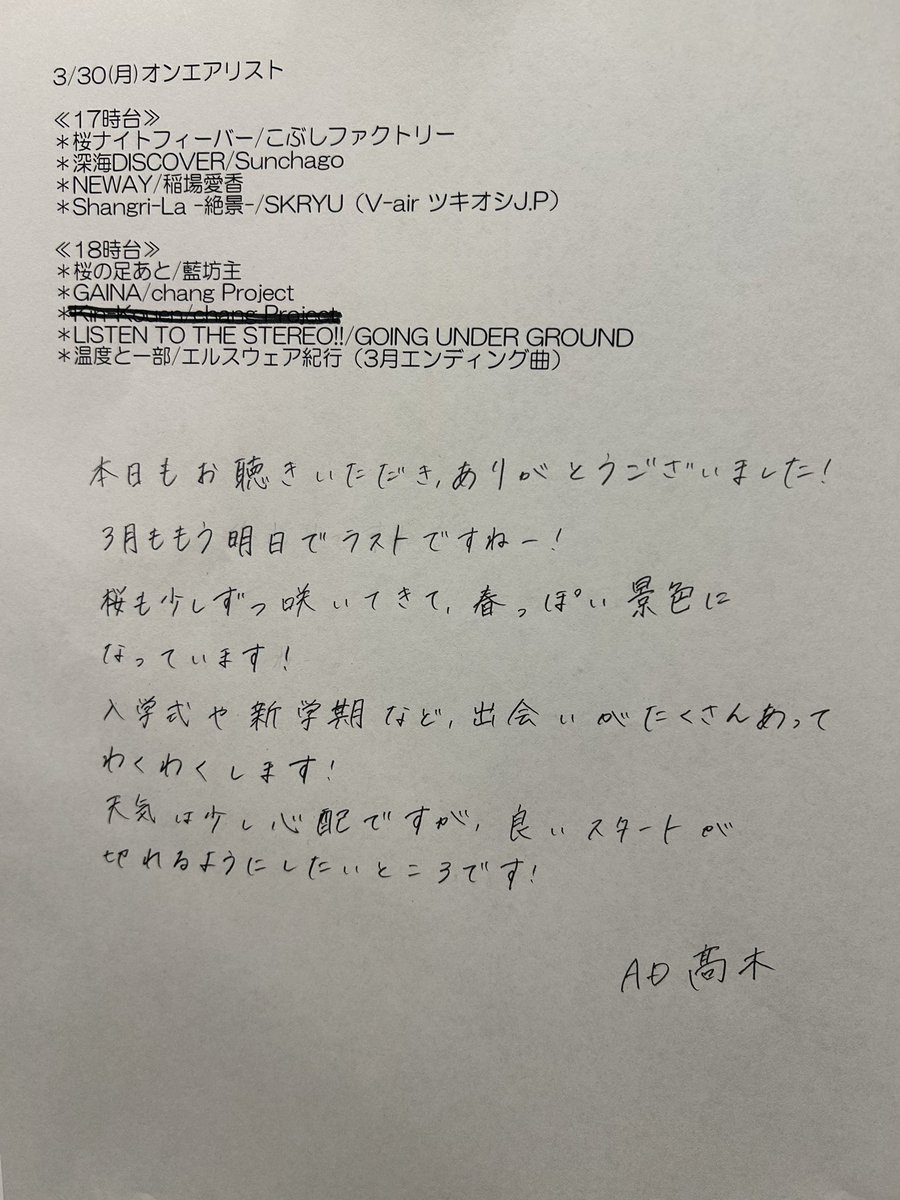 3/30(月)オンエアリスト
≪17時台≫
＊桜ナイトフィーバー/こぶしファクトリー
＊深海DISCOVER/Sunchago
＊NEWAY/稲場愛香
＊Shangri-La -絶景-/SKRYU（V-air ツキオシJ.P）
≪18時台≫
＊桜の足あと/藍坊主
＊GAINA/chang Project
＊Kin-Kouen/chang Project
＊LISTEN TO THE STEREO!!/GOING UNDER GROUND
＊温度と一部/エルスウェア紀行（3月エンディング曲）
本日もお聴きいただき、ありがとうございました!
3月ももう明日でラストですねー!
桜も少しずつ咲いてきて、春っぽい景色に
なっています!
入学式や新学期など、出会いがたくさんあって
わくわくします!
天気は少し心配ですが、良いスタートが
切れるようにしたいところです!
AD 髙木